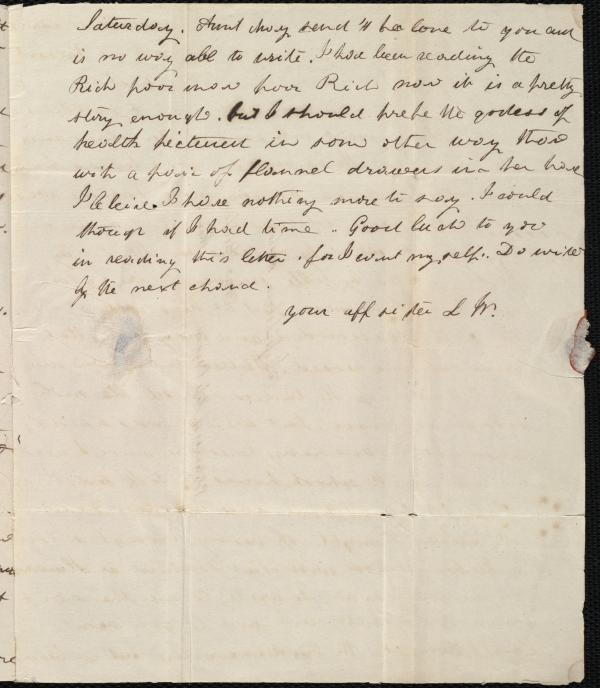 Saturday. Aunt Mary send's her love to you and
is no way able to write. I had been reading the
Rich poor man poor Rich now it is a pretty
story enough. but I should prefe the godess of
health pictured in som other way than
with a pair of flannel drawers in her hand
I have nothing more to say. I could
though if I had time. Good luck to you
in reading this letter. for I cant myself. Do write
by the next chand.
your aff sister L W.